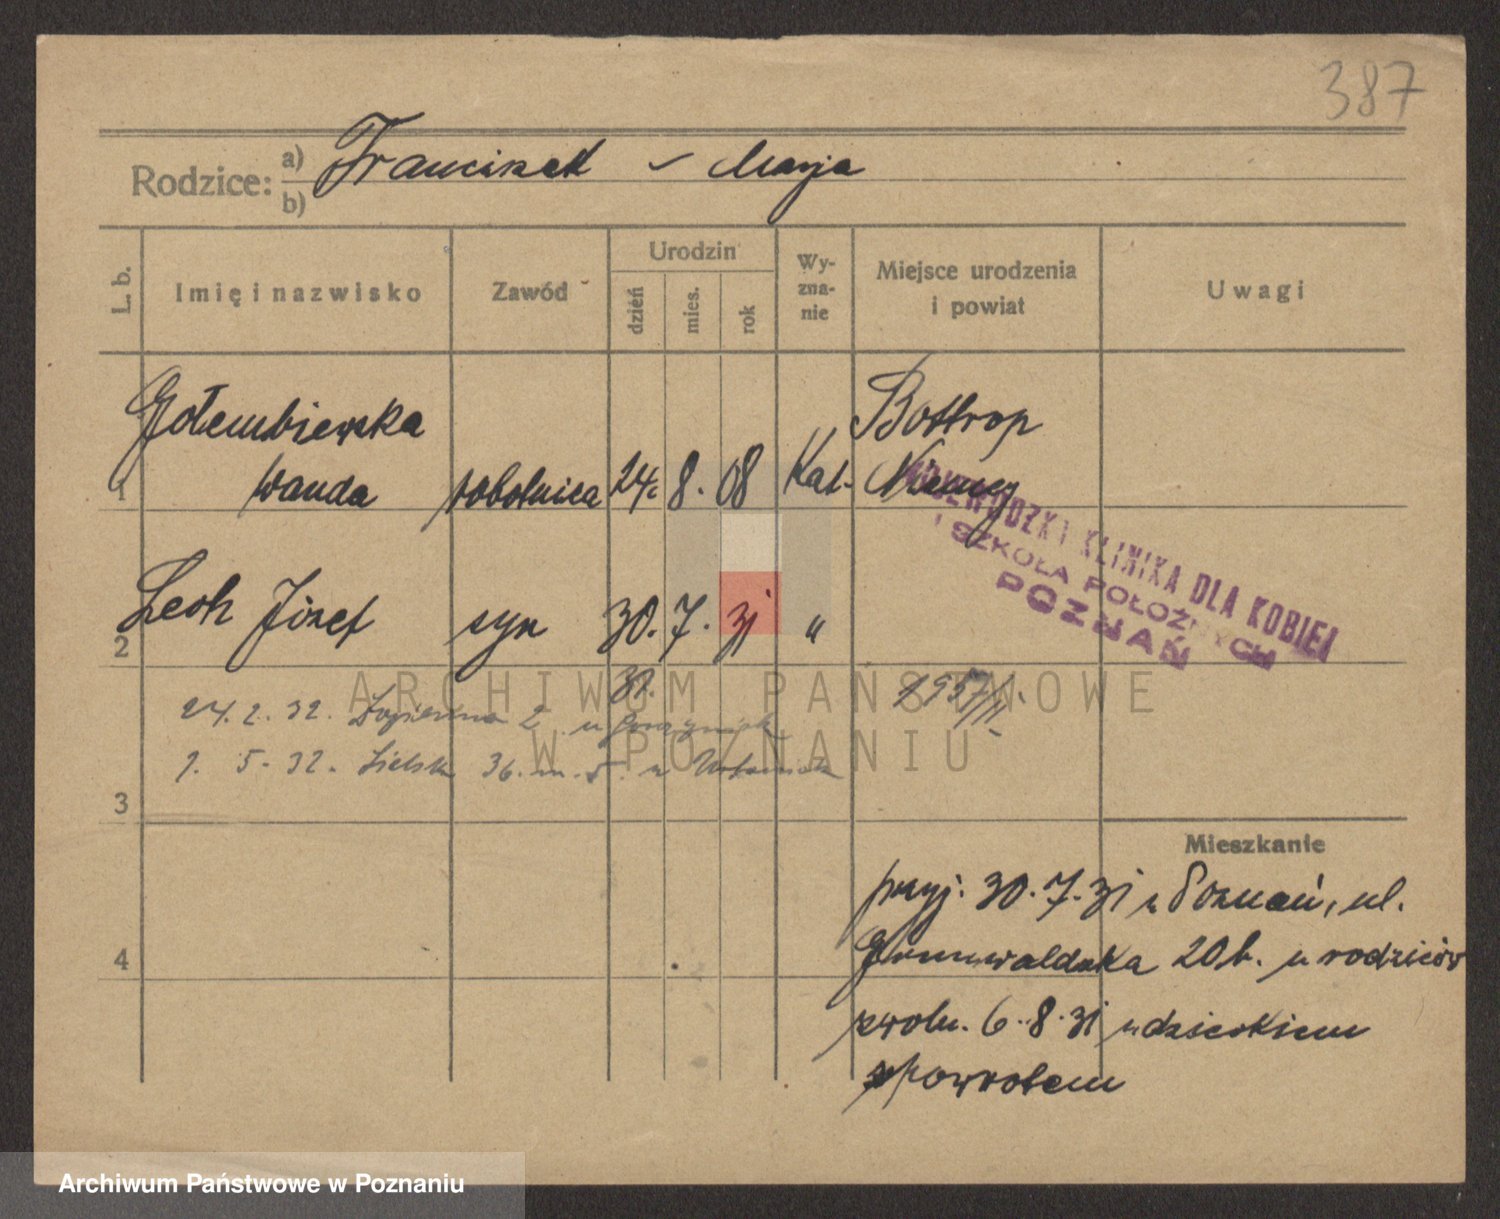 387
Rodzice: a) Franciszek - Marja
b)
L. b. Imię i nazwisko Zawód Urodzin dzień mies. rok Wyznanie Miejsce urodzenia i powiat Uwagi
Gołembiewska Bottrop
1 Wanda robotnica 24. 8. 08 Kat. Niemcy
WOJEWÓDZKA KLINIKA DLA KOBIET
I SZKOŁA POŁOŻNYCH
POZNAŃ
2 Lech Józef syn 30. 7. 31 "
31.
24. 2. 32. 2 u
1. 5. 32. 36. m. 5. u
3
Mieszkanie
przyj. 30. 7. 31 z Poznań, ul.
4 Grunwaldzka 20b. u rodziców
zwoln. 6. 8. 31 z dzieckiem
spowrotem
ARCHIWUM PAŃSTWOWE
W POZNANIU
Archiwum Państwowe w Poznaniu